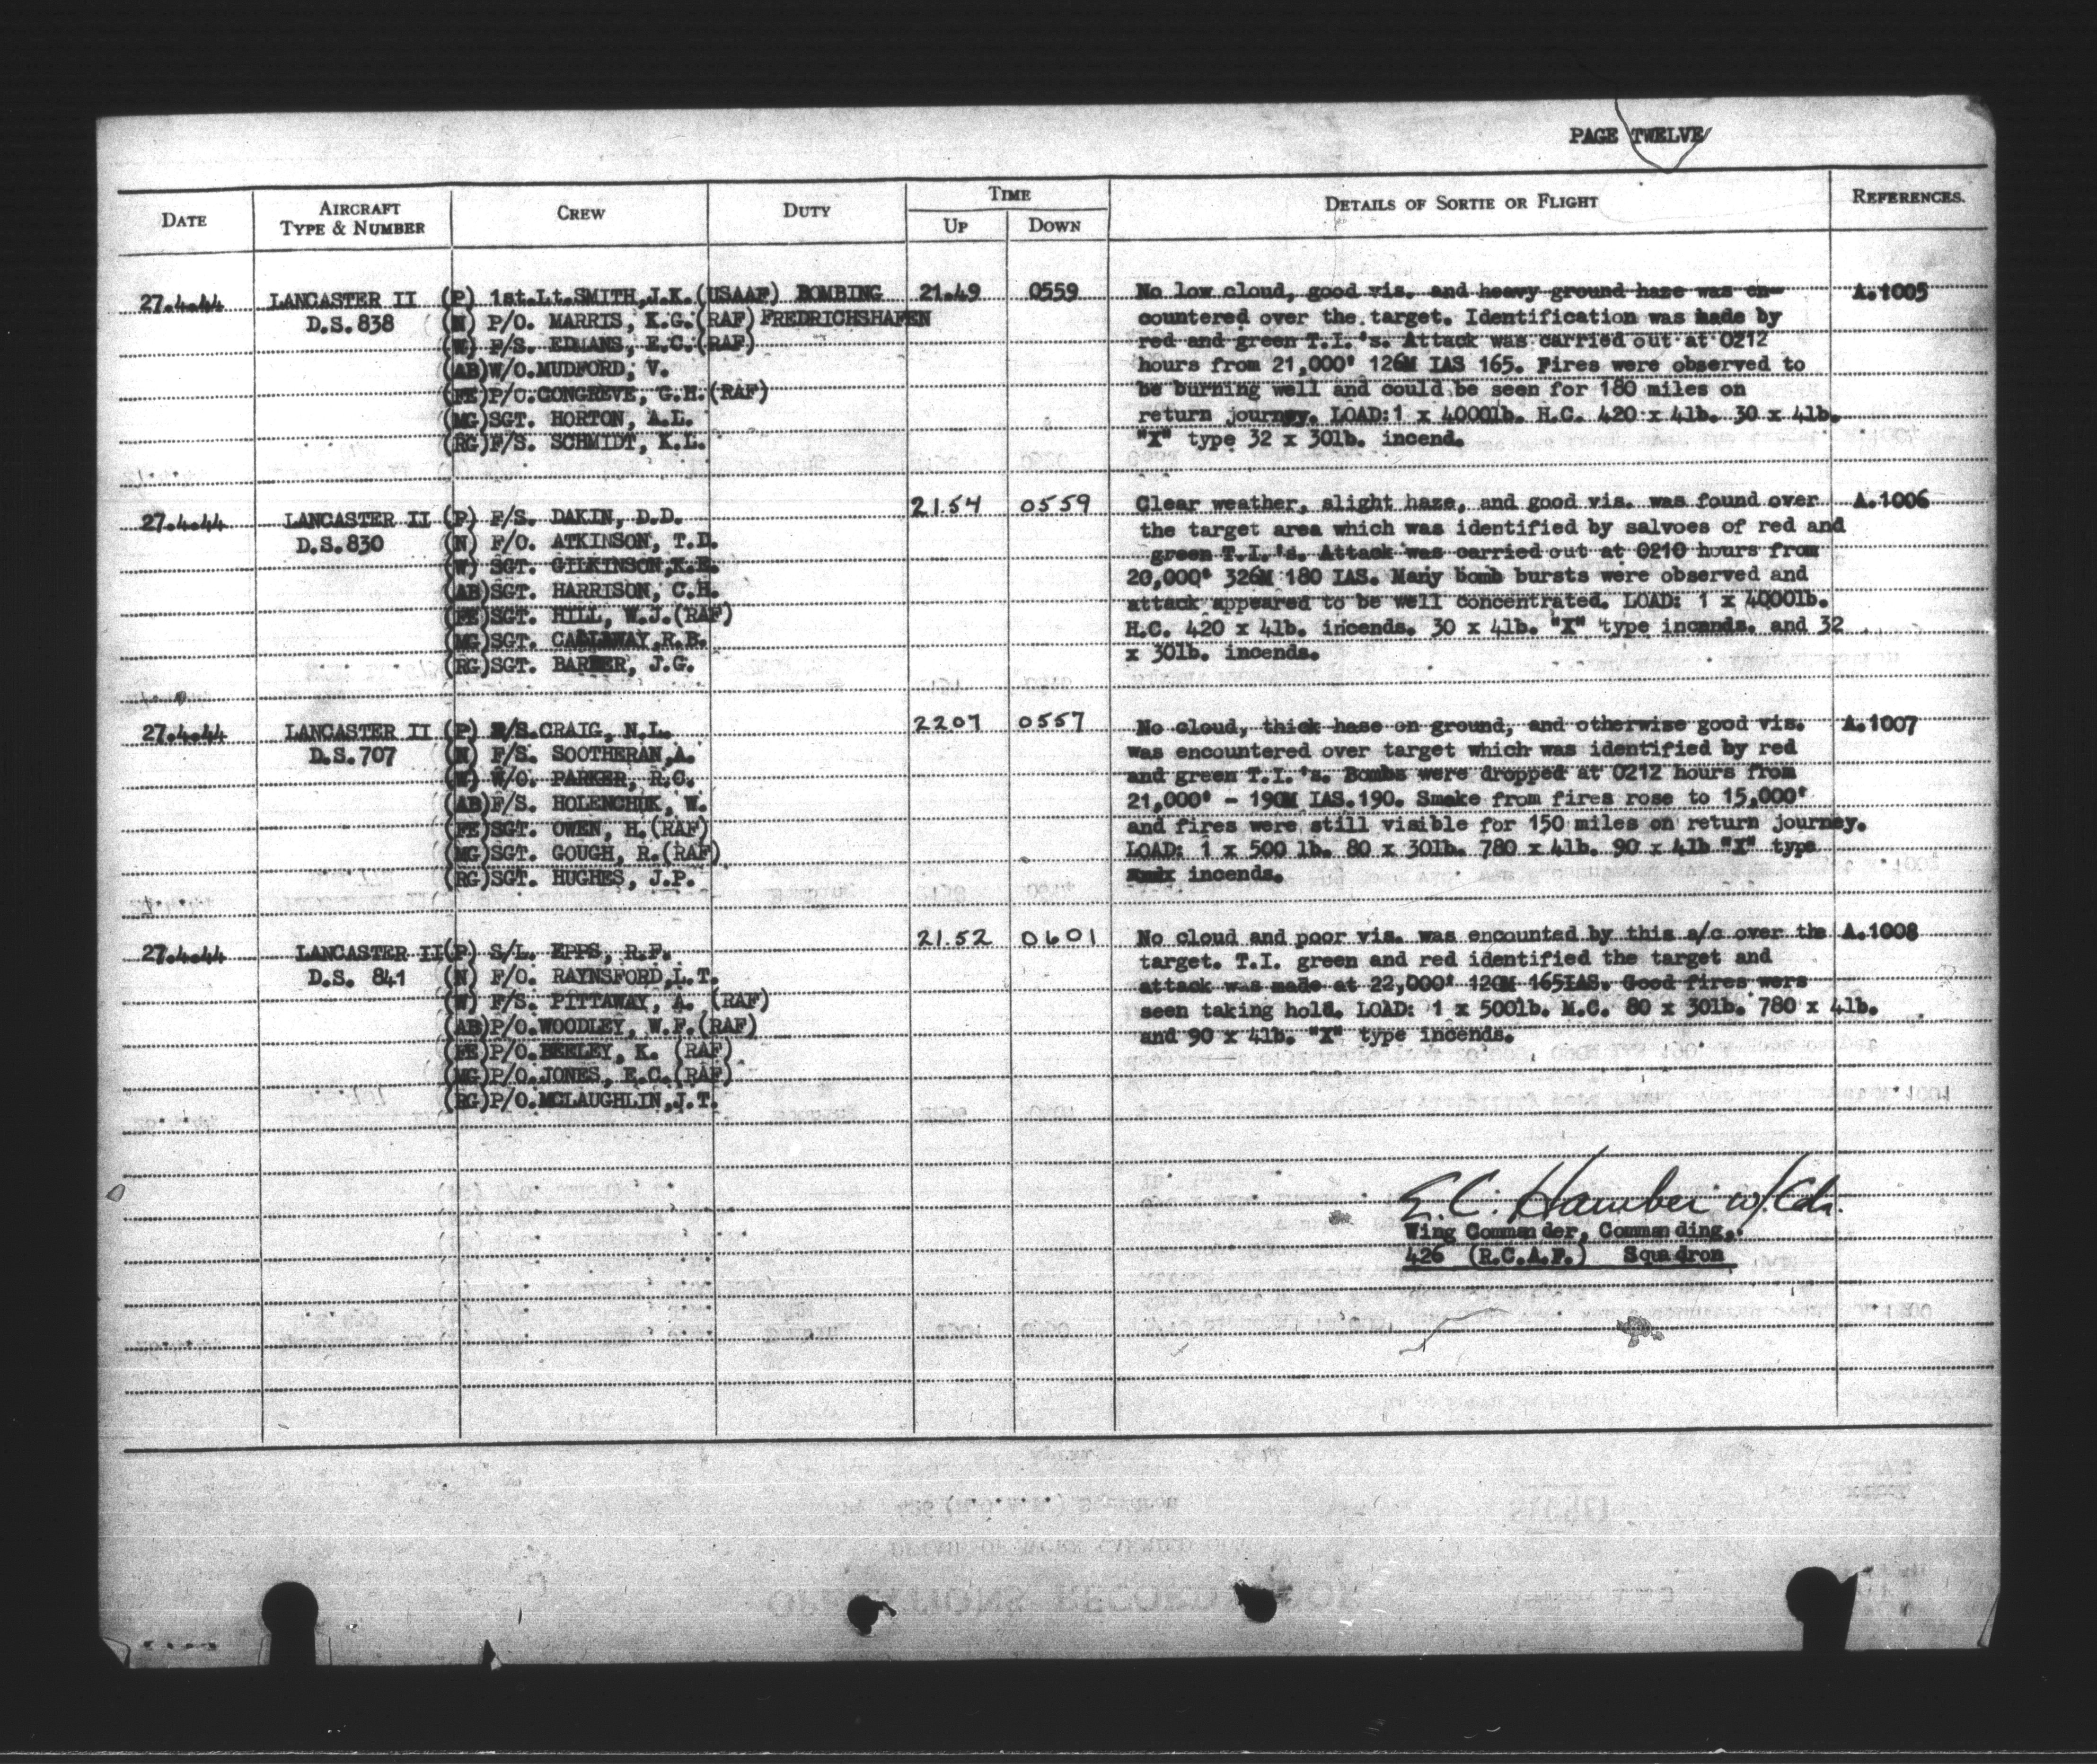 PAGE TWELVE
DATE
AIRCRAFT
TYPE & NUMBER
CREW
DUTY
TIME
UP
DOWN
DETAILS OF SORTIE OR FLIGHT
REFERENCES.
27.4.44 LANCASTER II (P) 1st.Lt.SMITH,J.K.(USAAF) BOMBING 21.49 0559 No low cloud, good vis. and heavy ground haze was en- A.1005
D.S.838 (N) P/O. MARRIS, K.G.(RAF) FREDRICHSHAFEN countered over the target. Identification was made by
(W) P/S. EDMANS, E.C.(RAF) red and green T.I.'s. Attack was carried out at 0212
(AB)W/O.MUDFORD, V. hours from 21,000' 126M IAS 165. Fires were observed to
(FE)P/O.CONGREVE, G.H.(RAF) be burning well and could be seen for 180 miles on
(MG)SGT. HORTON, A.L. return journey. LOAD:1 x 4000lb. H.C. 420 x 4lb. 30 x 4lb.
(RG)F/S. SCHMIDT, K.L. "X" type 32 x 30lb. incend.
27.4.44 LANCASTER II (P) F/S. DAKIN, D.D. 21.54 0559 Clear weather, slight haze, and good vis. was found over A.1006
D.S.830 (N) F/O. ATKINSON, T.D. the target area which was identified by salvoes of red and
(W) SGT. GILKINSON,K.E. green T.I.'s. Attack was carried out at 0210 hours from
(AB)SGT. HARRISON, C.H. 20,000' 326M 180 IAS. Many bomb bursts were observed and
(FE)SGT. HILL, W.J.(RAF) attack appeared to be well concentrated. LOAD: 1 x 4000lb.
(MG)SGT. CALLAWAY,R.B. H.C. 420 x 4lb. incends. 30 x 4lb. "X" type incends. and 32
(RG)SGT. BARBER, J.G. x 30lb. incends.
27.4.44 LANCASTER II (P) F/S.CRAIG, N.L. 2207 0557 No cloud, thick hase on ground, and otherwise good vis. A.1007
D.S.707 (N) F/S. SOOTHERAN,A. was encountered over target which was identified by red
(W) W/O. PARKER, R.C. and green T.I.'s. Bombs were dropped at 0212 hours from
(AB)F/S. HOLENCHUK, W. 21,000' - 190M IAS.190. Smoke from fires rose to 15,000'
(FE)SGT. OWEN, H.(RAF) and fires were still visible for 150 miles on return journey.
(MG)SGT. GOUGH, R.(RAF) LOAD: 1 x 500 lb. 80 x 30lb. 780 x 4lb. 90 x 4lb "X" type
(RG)SGT. HUGHES, J.P. incends.
27.4.44 LANCASTER II(P) S/L. EPPS, R.F. 21.52 0601 No cloud and poor vis. was encounted by this a/c over the A.1008
D.S. 841 (N) F/O. RAYNSFORD,L.T. target. T.I. green and red identified the target and
(W) F/S. PITTAWAY, A. (RAF) attack was made at 22,000' 120M 165IAS. Good fires were
(AB)P/O.WOODLEY, W.F.(RAF) seen taking hold. LOAD: 1 x 500lb. M.C. 80 x 30lb. 780 x 4lb.
(FE)P/O.BEELEY, K. (RAF) and 90 x 4lb. "X" type incends.
(MG)P/O.JONES, E.C.(RAF)
(RG)P/O.MCLAUGHLIN,J.T.
E.C. Hamber w/Cdr.
Wing Commander, Commanding,
426 (R.C.A.F.) Squadron